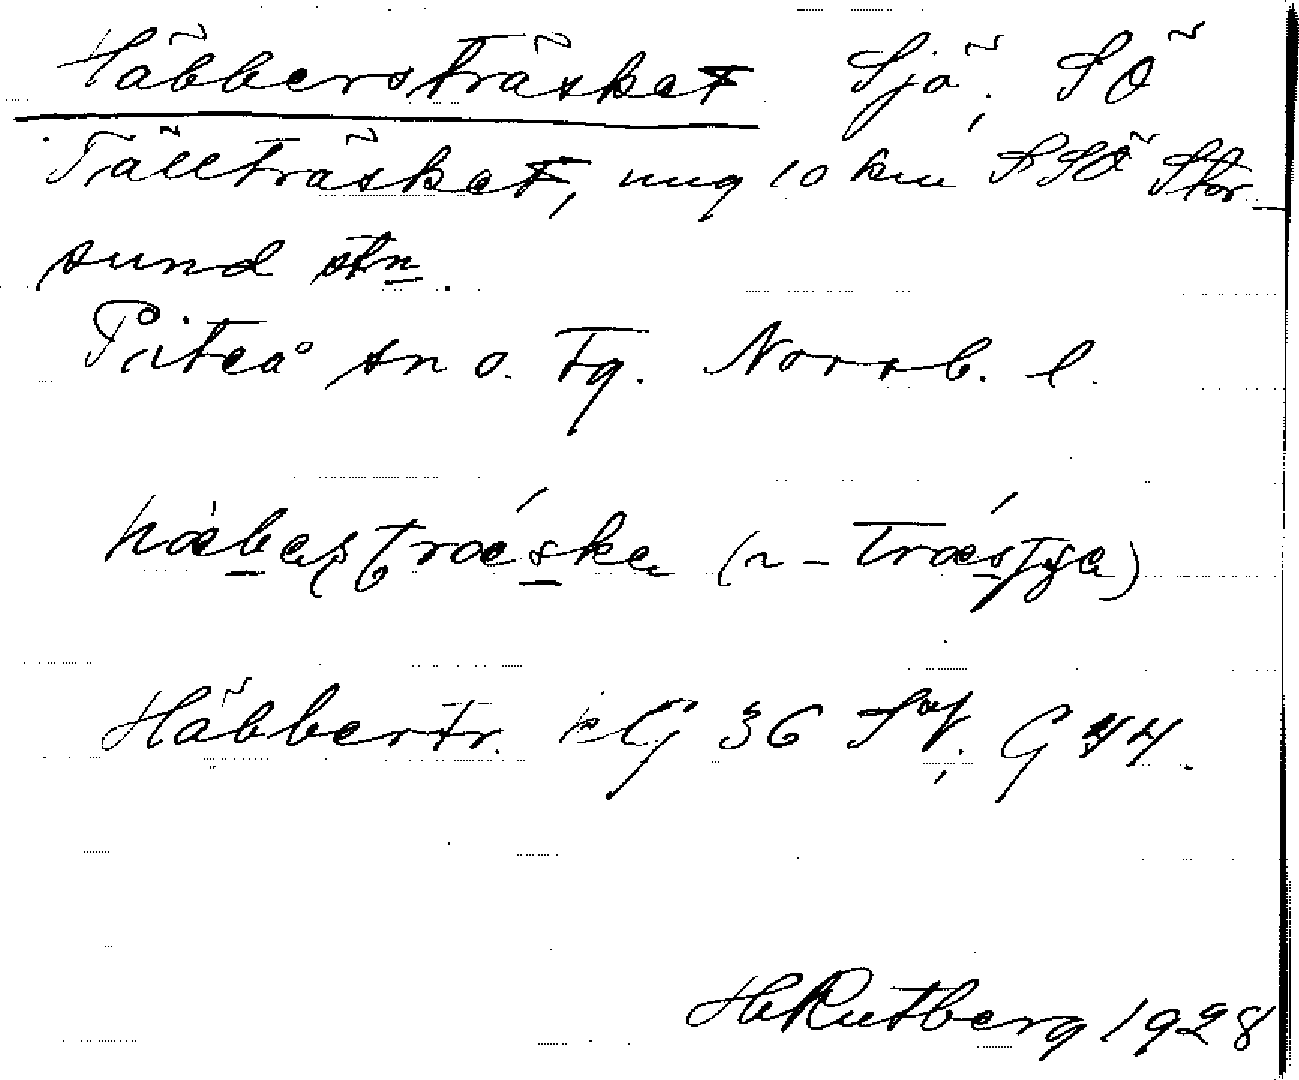 Häbbersträsket Sjö, SÖ
Tällträsket, ung 10 km SSÖ Stor-
sund stn.
Piteå sn o. tg. Norrb. l.
hæbeʂtrǽske (~ -trǽsʃɟe)
Häbbertr. kG 36 SV; G 44.
H Rutberg 1928